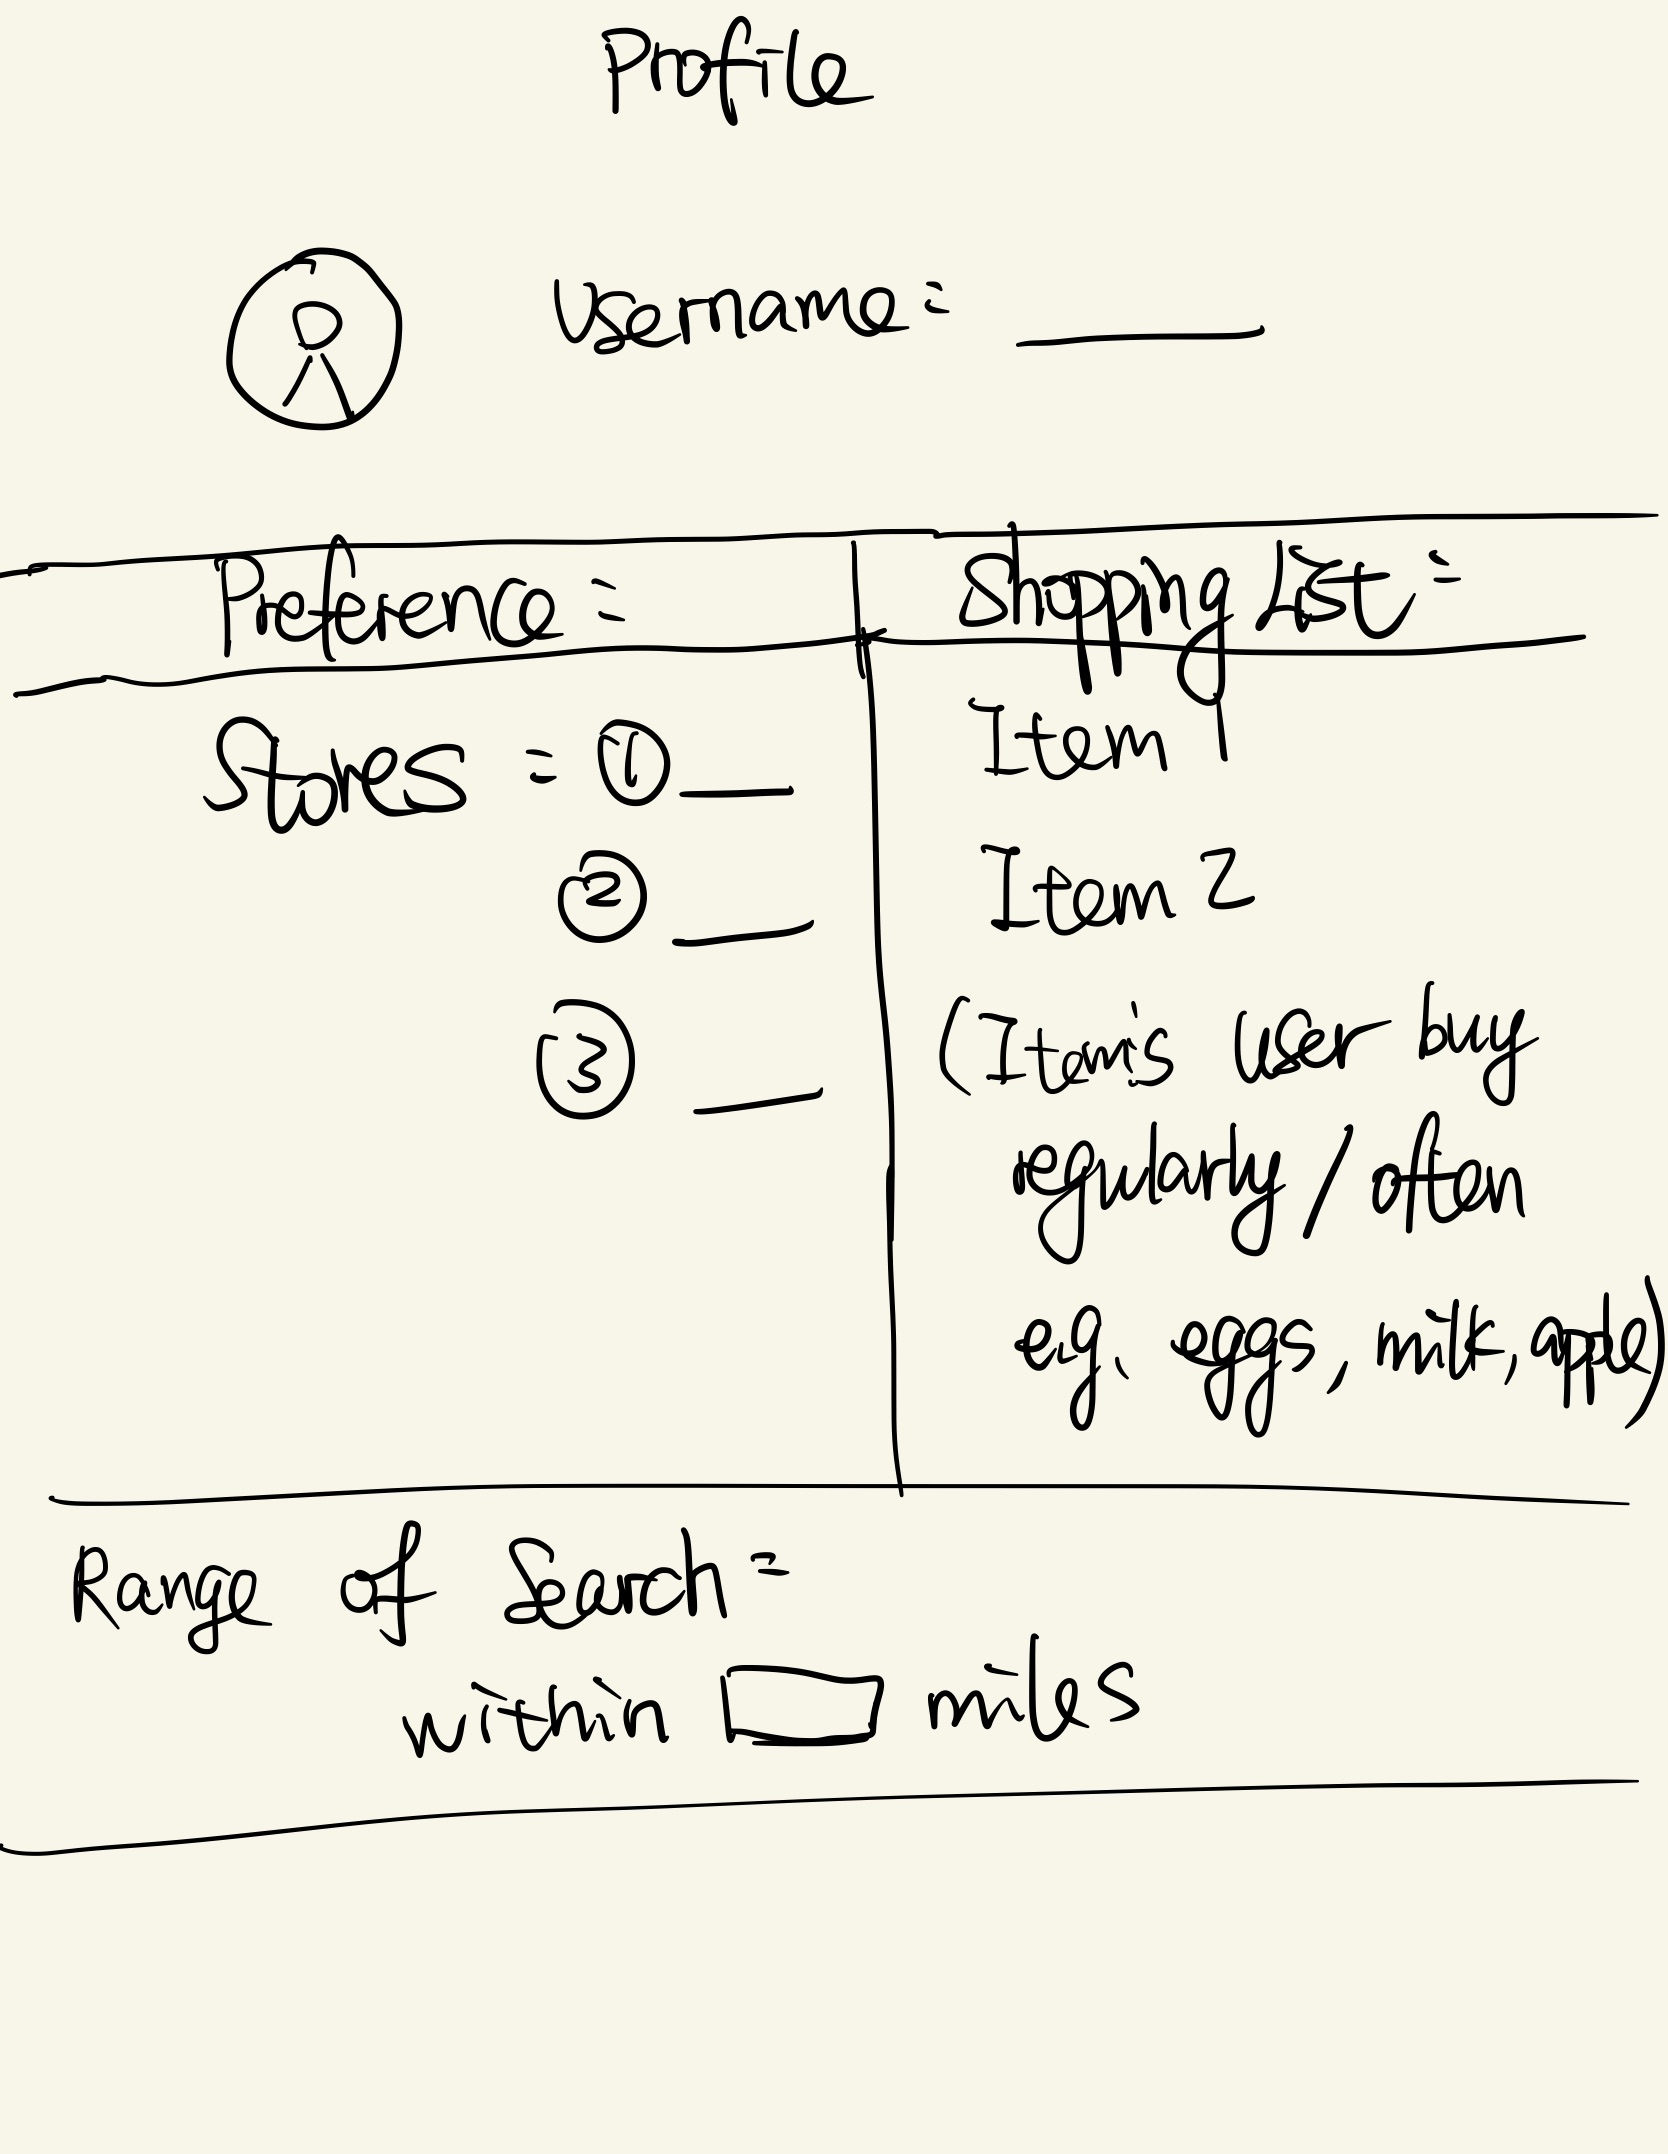 Profile
Username:
Preference:
Shopping List:
Stores: ① ___
② ___
③ ___
Item 1
Item 2
(Item's user buy
regularly / often
e.g. eggs, milk, apple)
Range of Search:
within miles